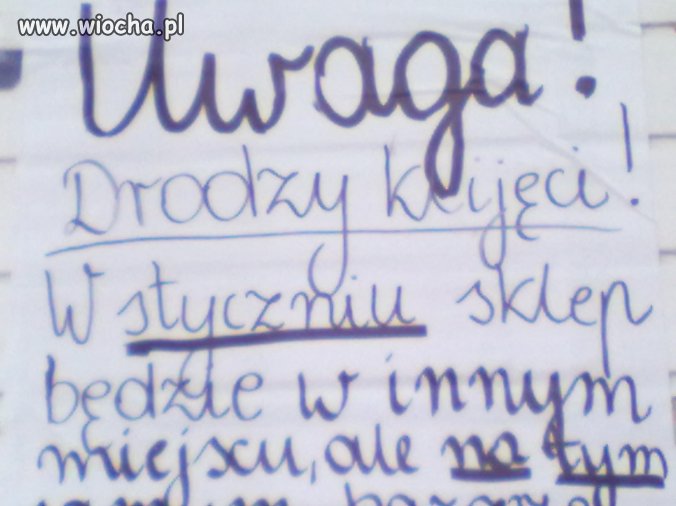 www.wiocha.pl
Uwaga!
Drodzy klijęci!
W styczniu sklep
będzie w innym
miejscu, ale na tym